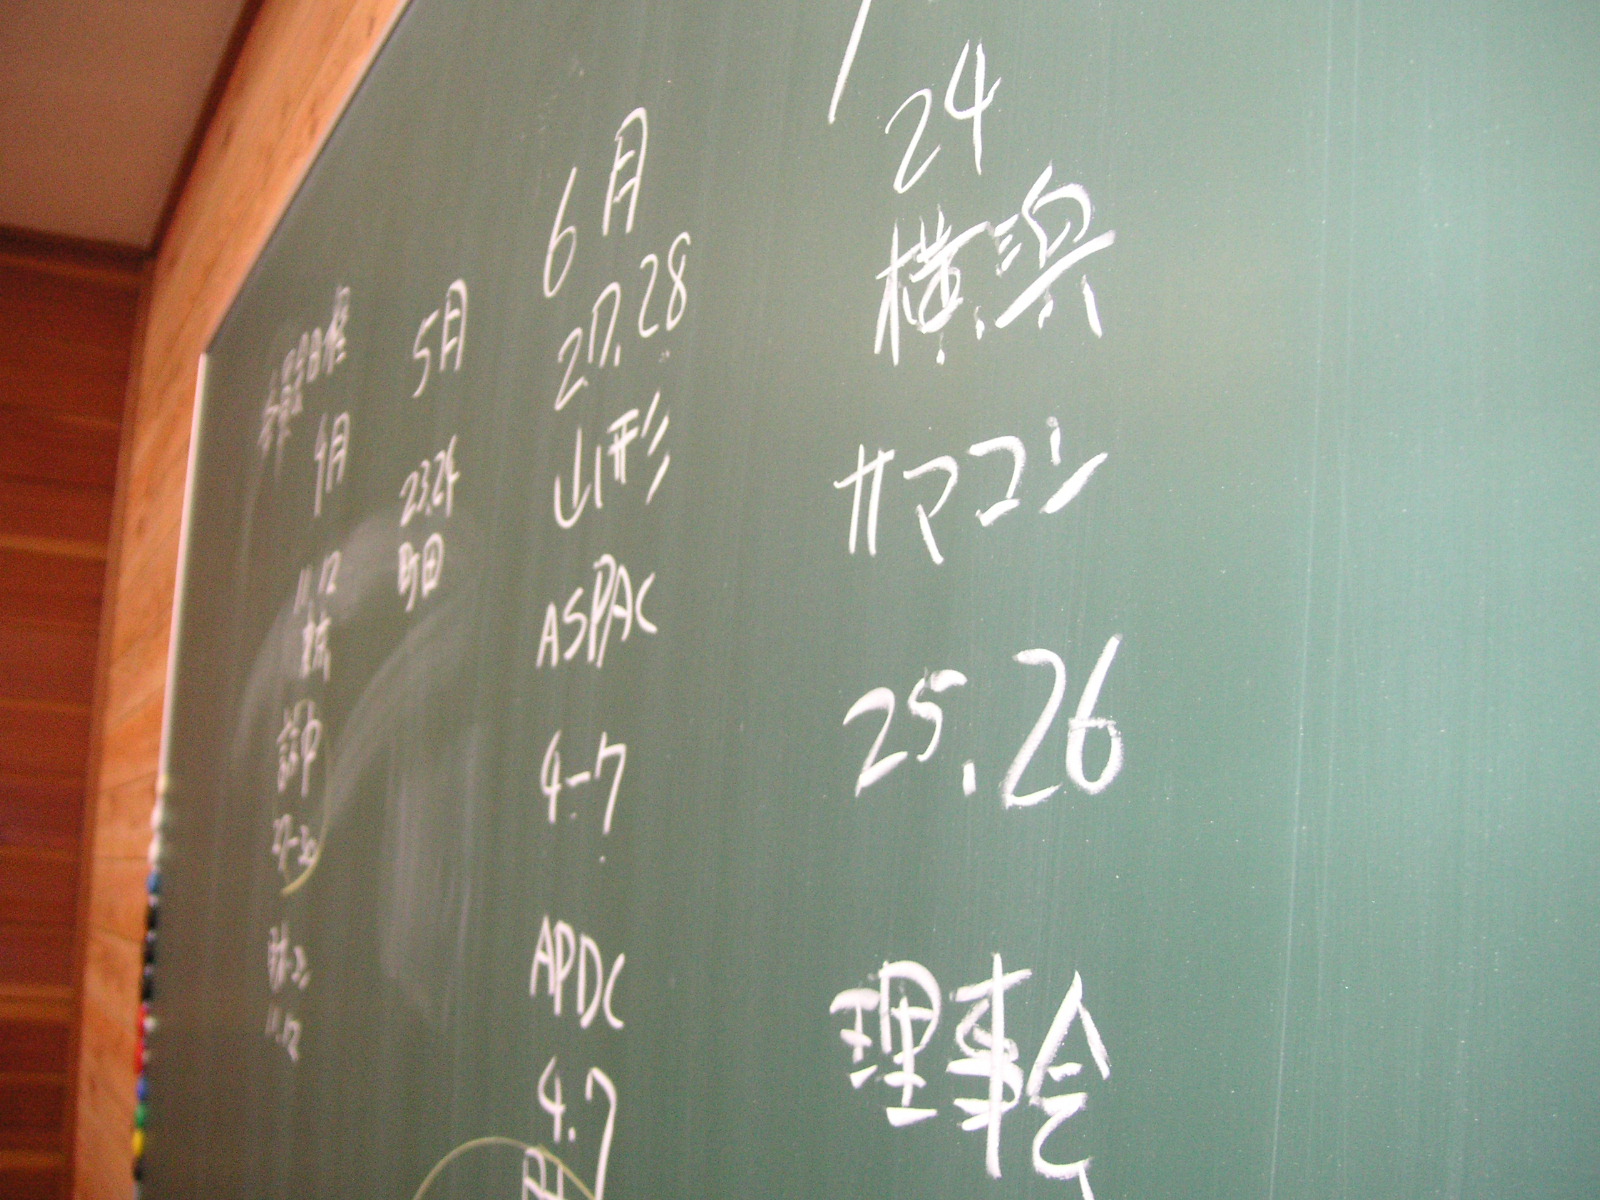 4月
11.12
東京
27-30
11.12
5月
23.24
町田
6月
27.28
山形
ASPAC
4-7
APDC
4.7
24
横浜
サマコン
25.26
理事会